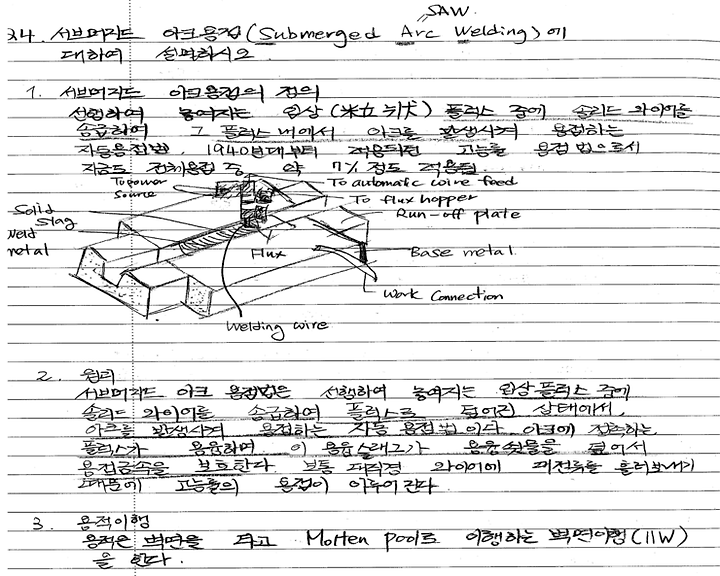 SAW
24. 서브머지드 아크용접(Submerged Arc Welding)에
대하여 설명하시오
1. 서브머지드 아크용접의 정의
선행하여 놓여지는 입상(粒状) 플럭스 중에 솔리드 와이어를
송급하여 그 플럭스 내에서 아크를 발생시켜 용접하는
자동용접법. 1940년대부터 적용되던 고능률 용접법으로서
지금도 전체용접 중 약 7% 정도 적용됨.
To power
Source
To automatic wire feed
To flux hopper
Run-off plate
Solid
Slag
Weld
metal
Flux
Base metal
Work Connection
Welding wire
2. 원리
서브머지드 아크 용접법은 선행하여 놓여지는 입상플럭스 중에
솔리드 와이어를 송급하여 플럭스로 덮어진 상태에서,
아크를 발생시켜 용접하는 자동 용접법이다. 아크에 접촉하는
플럭스가 용융하며 이 용융슬래그가 용융쇳물을 덮어서
용접금속을 보호한다 보통 대직경 와이어에 대전류를 흘려보내기
때문에 고능률의 용접이 이루어진다
3. 용적이행
용적은 벽면을 타고 Morten pool로 이행하는 벽면이행(IIW)
을 한다.